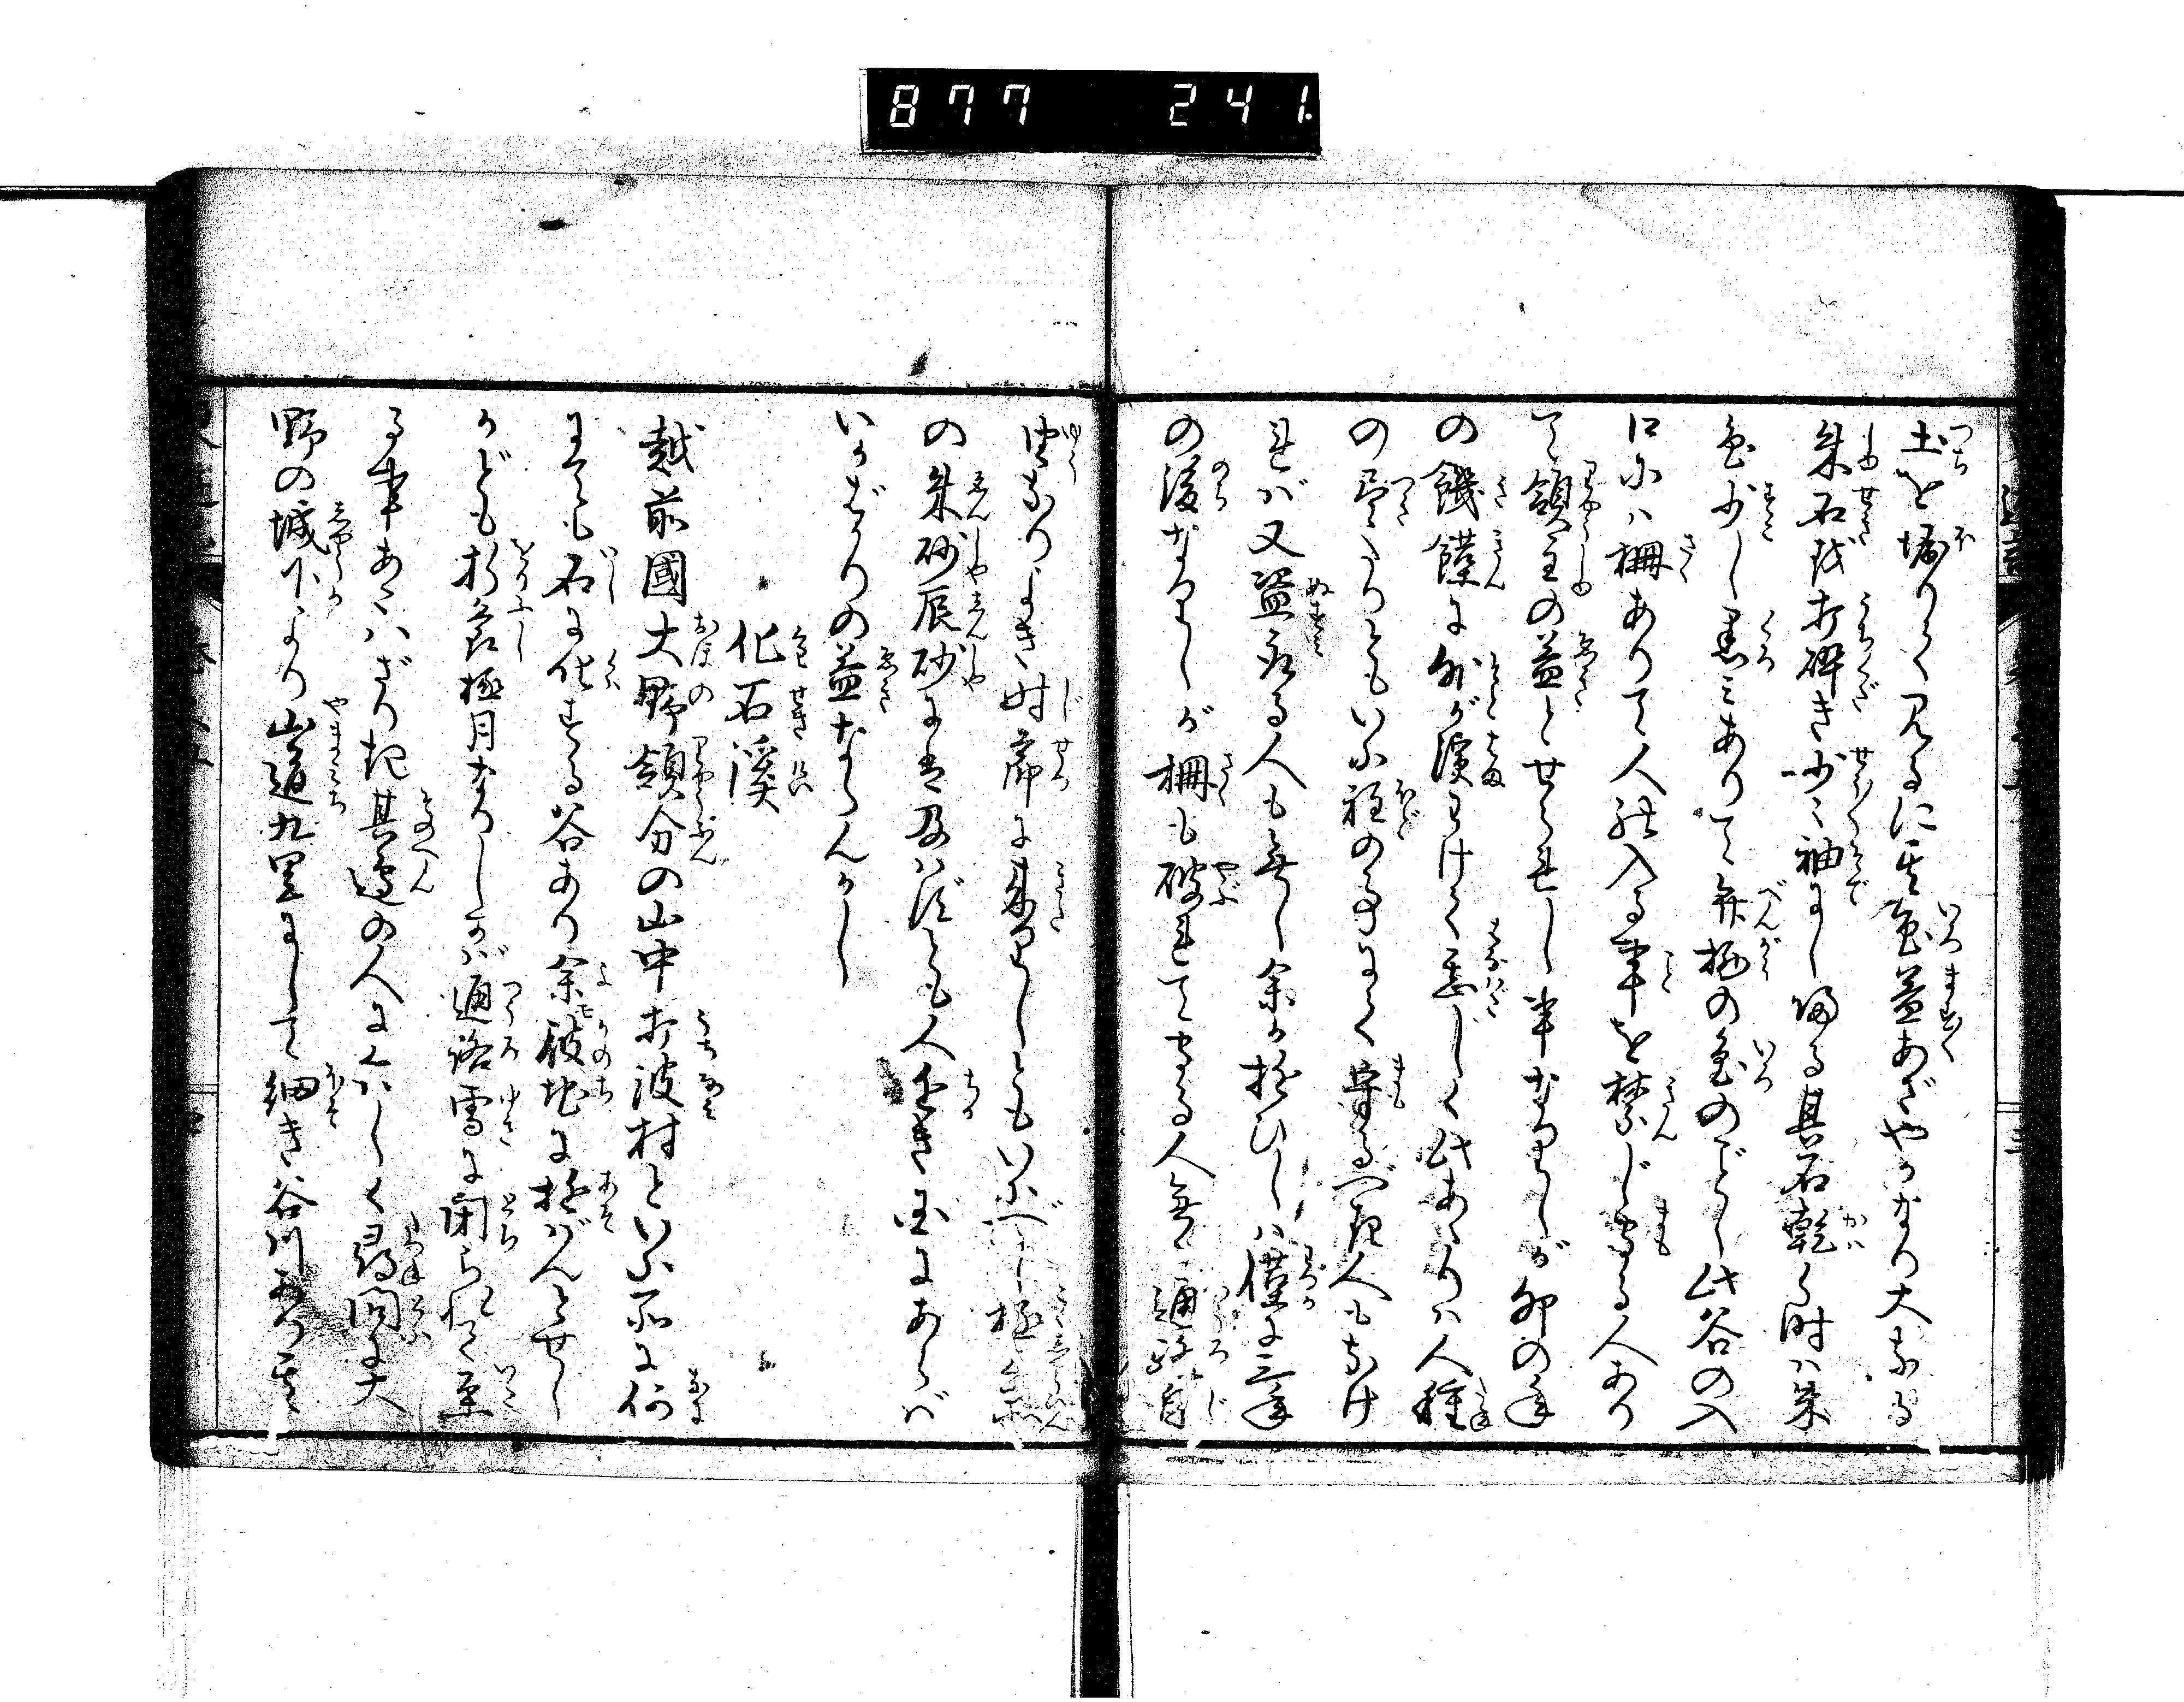 877 241
土を堀りて見るに其色益あざやかなり大なる
朱石を打砕き少〻袖にし帰る其石乾く時は朱
色少し黒みありて弁柄の色のごとし此谷の入
口には柵ありて人の入る事を禁じ守る人あり
て領主の益とせられし事なりしが卯の年
の饑饉に外が濱わけて甚じく此あたりは人種
の尽たりともいふ程の事にて守るべき人もなけ
れば又盗取る人も無し余が遊ひしは僅に三年
の後なりしが柵も破れて守る人無く通路自
由なりよき時節に来りしともいふべし極品
の朱砂辰砂には及はずとも人近き国にあらば
いかばかりの益ならんかし
化石渓
越前國大野領分の山中打波村といふ所に何
にても石に化する谷あり余彼地に遊ばんとせし
かども折節極月なりしかば通路雪に閉られて至
る事あたはざりき其邊の人にくはしく尋問に大
野の城下より山道九里にして細き谷川あり其